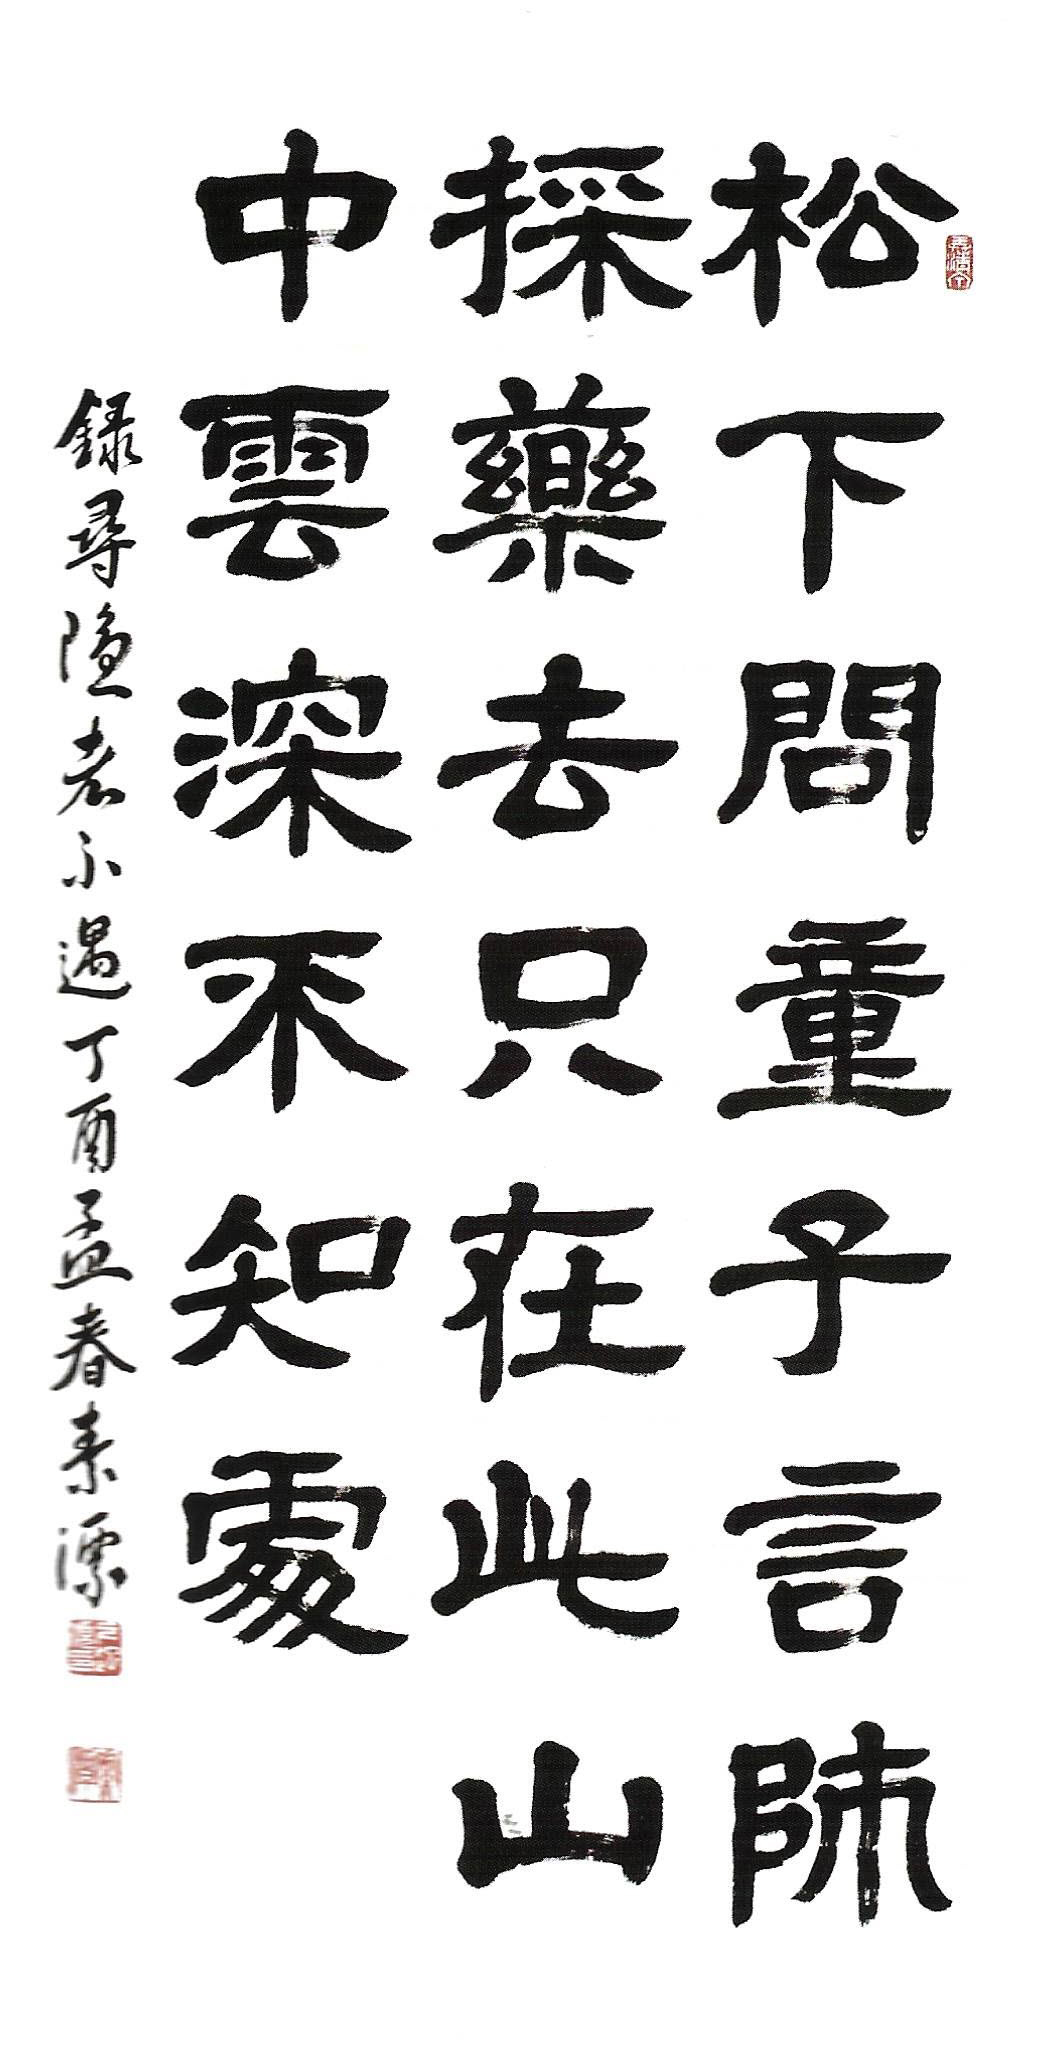 松下問童子言師
採藥去只在此山
中雲深不知處
錄尋隱者不遇丁酉孟春素濡